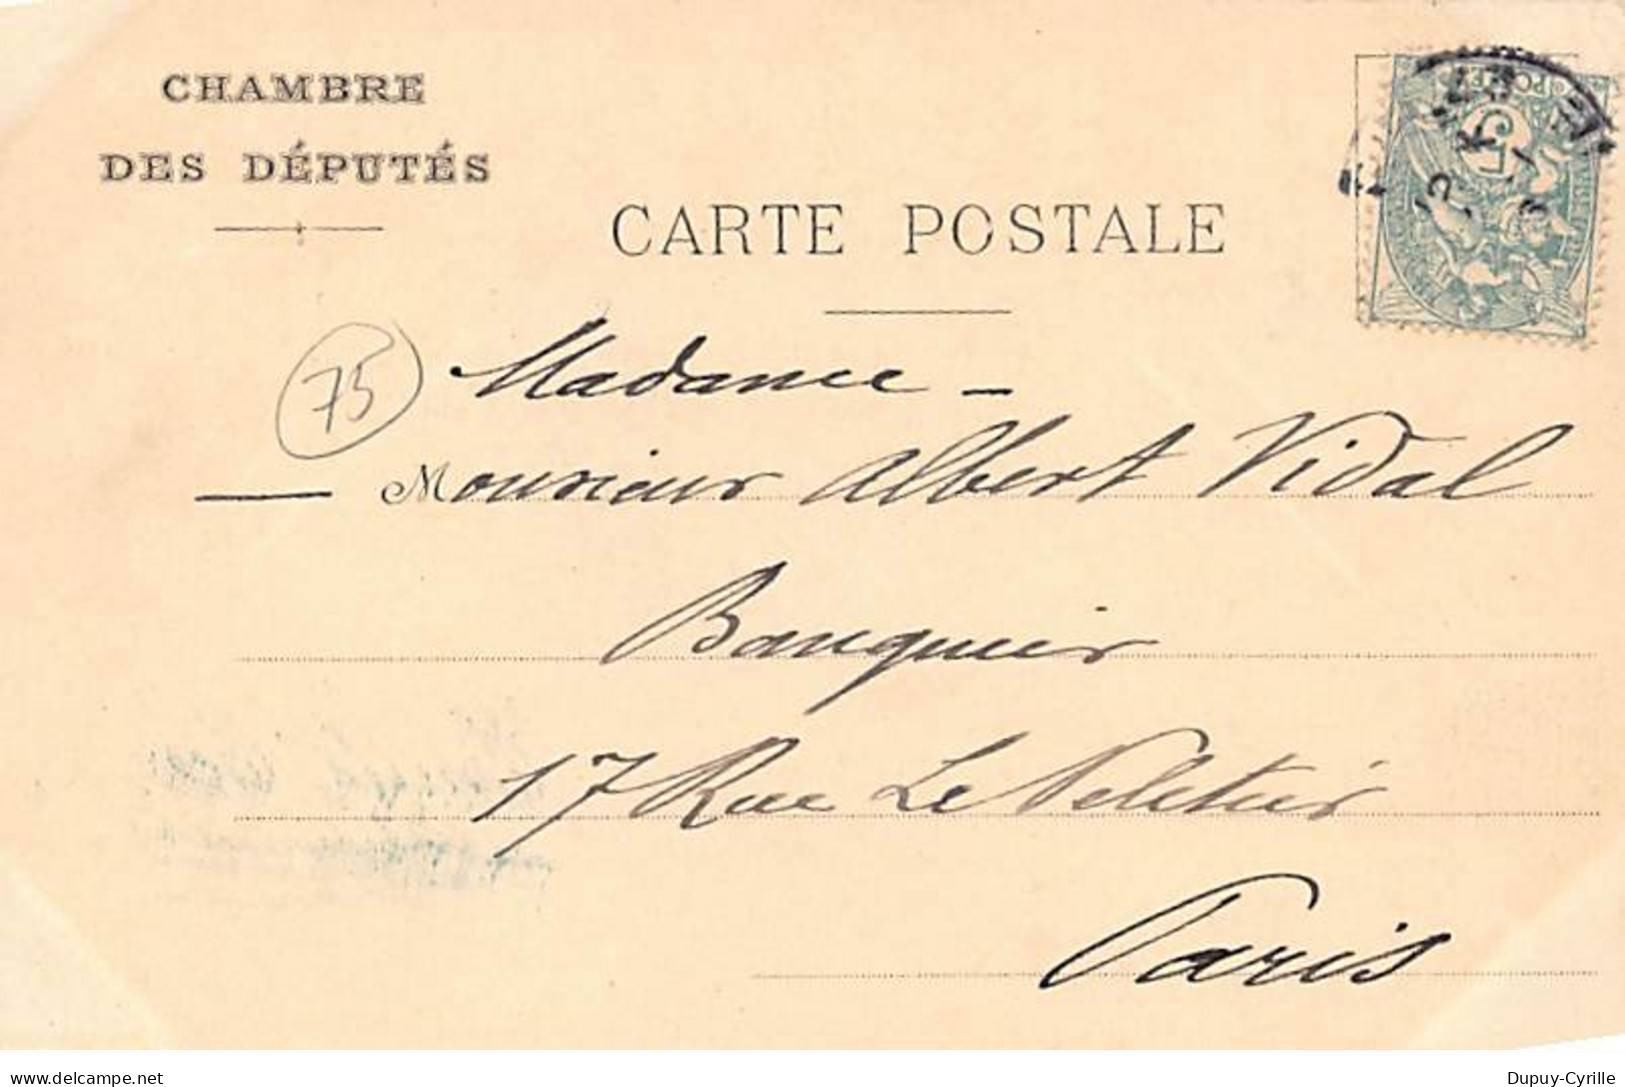 CHAMBRE
DES DÉPUTÉS
CARTE POSTALE
POSTES
5
75
Madame –
— Monsieur Albert Vidal
Banquier
17 Rue Le Peletier
Paris
delcampe.net
Dupuy-Cyrille